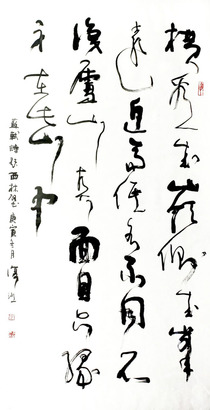 横看成嶺側成峯
遠近高低各不同不
識廬山真面目只緣
身在此山中
蘇軾詩題西林壁庚寅冬月